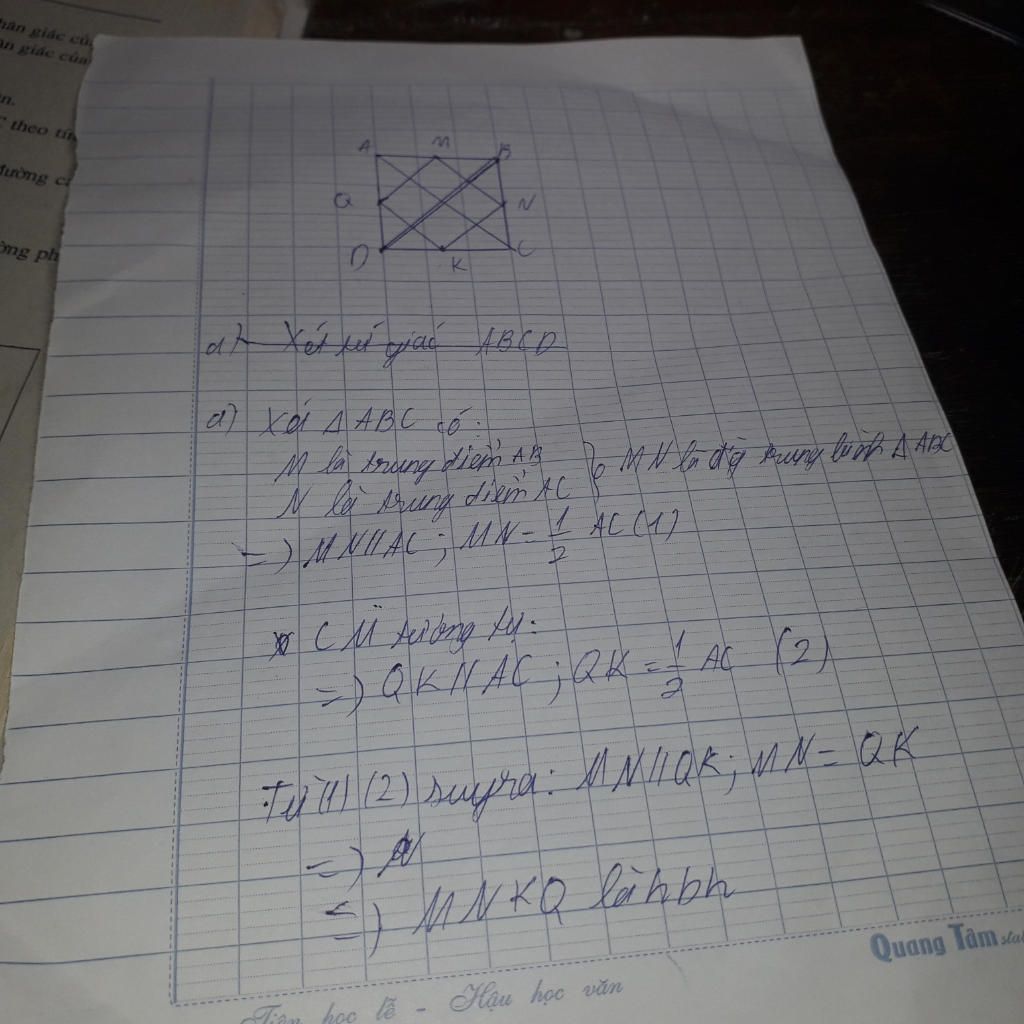 hân giác củ
ân giác của
n.
C theo tỉ
đường c
ờng ph
A M B
Q N
D K C
a) Xét tứ giác ABCD
a) Xét Δ ABC có:
M là trung điểm AB } MN là đg trung bình Δ ABC
N là trung điểm AC
=) MN//AC; MN = 1/2 AC (1)
CM tương tự:
=) QK//AC; QK = 1/2 AC (2)
Từ (1) (2) suy ra: MN//QK; MN = QK
=) N
=) MNKQ là hbh
Quang Tâm
Tiên học lễ - Hậu học văn